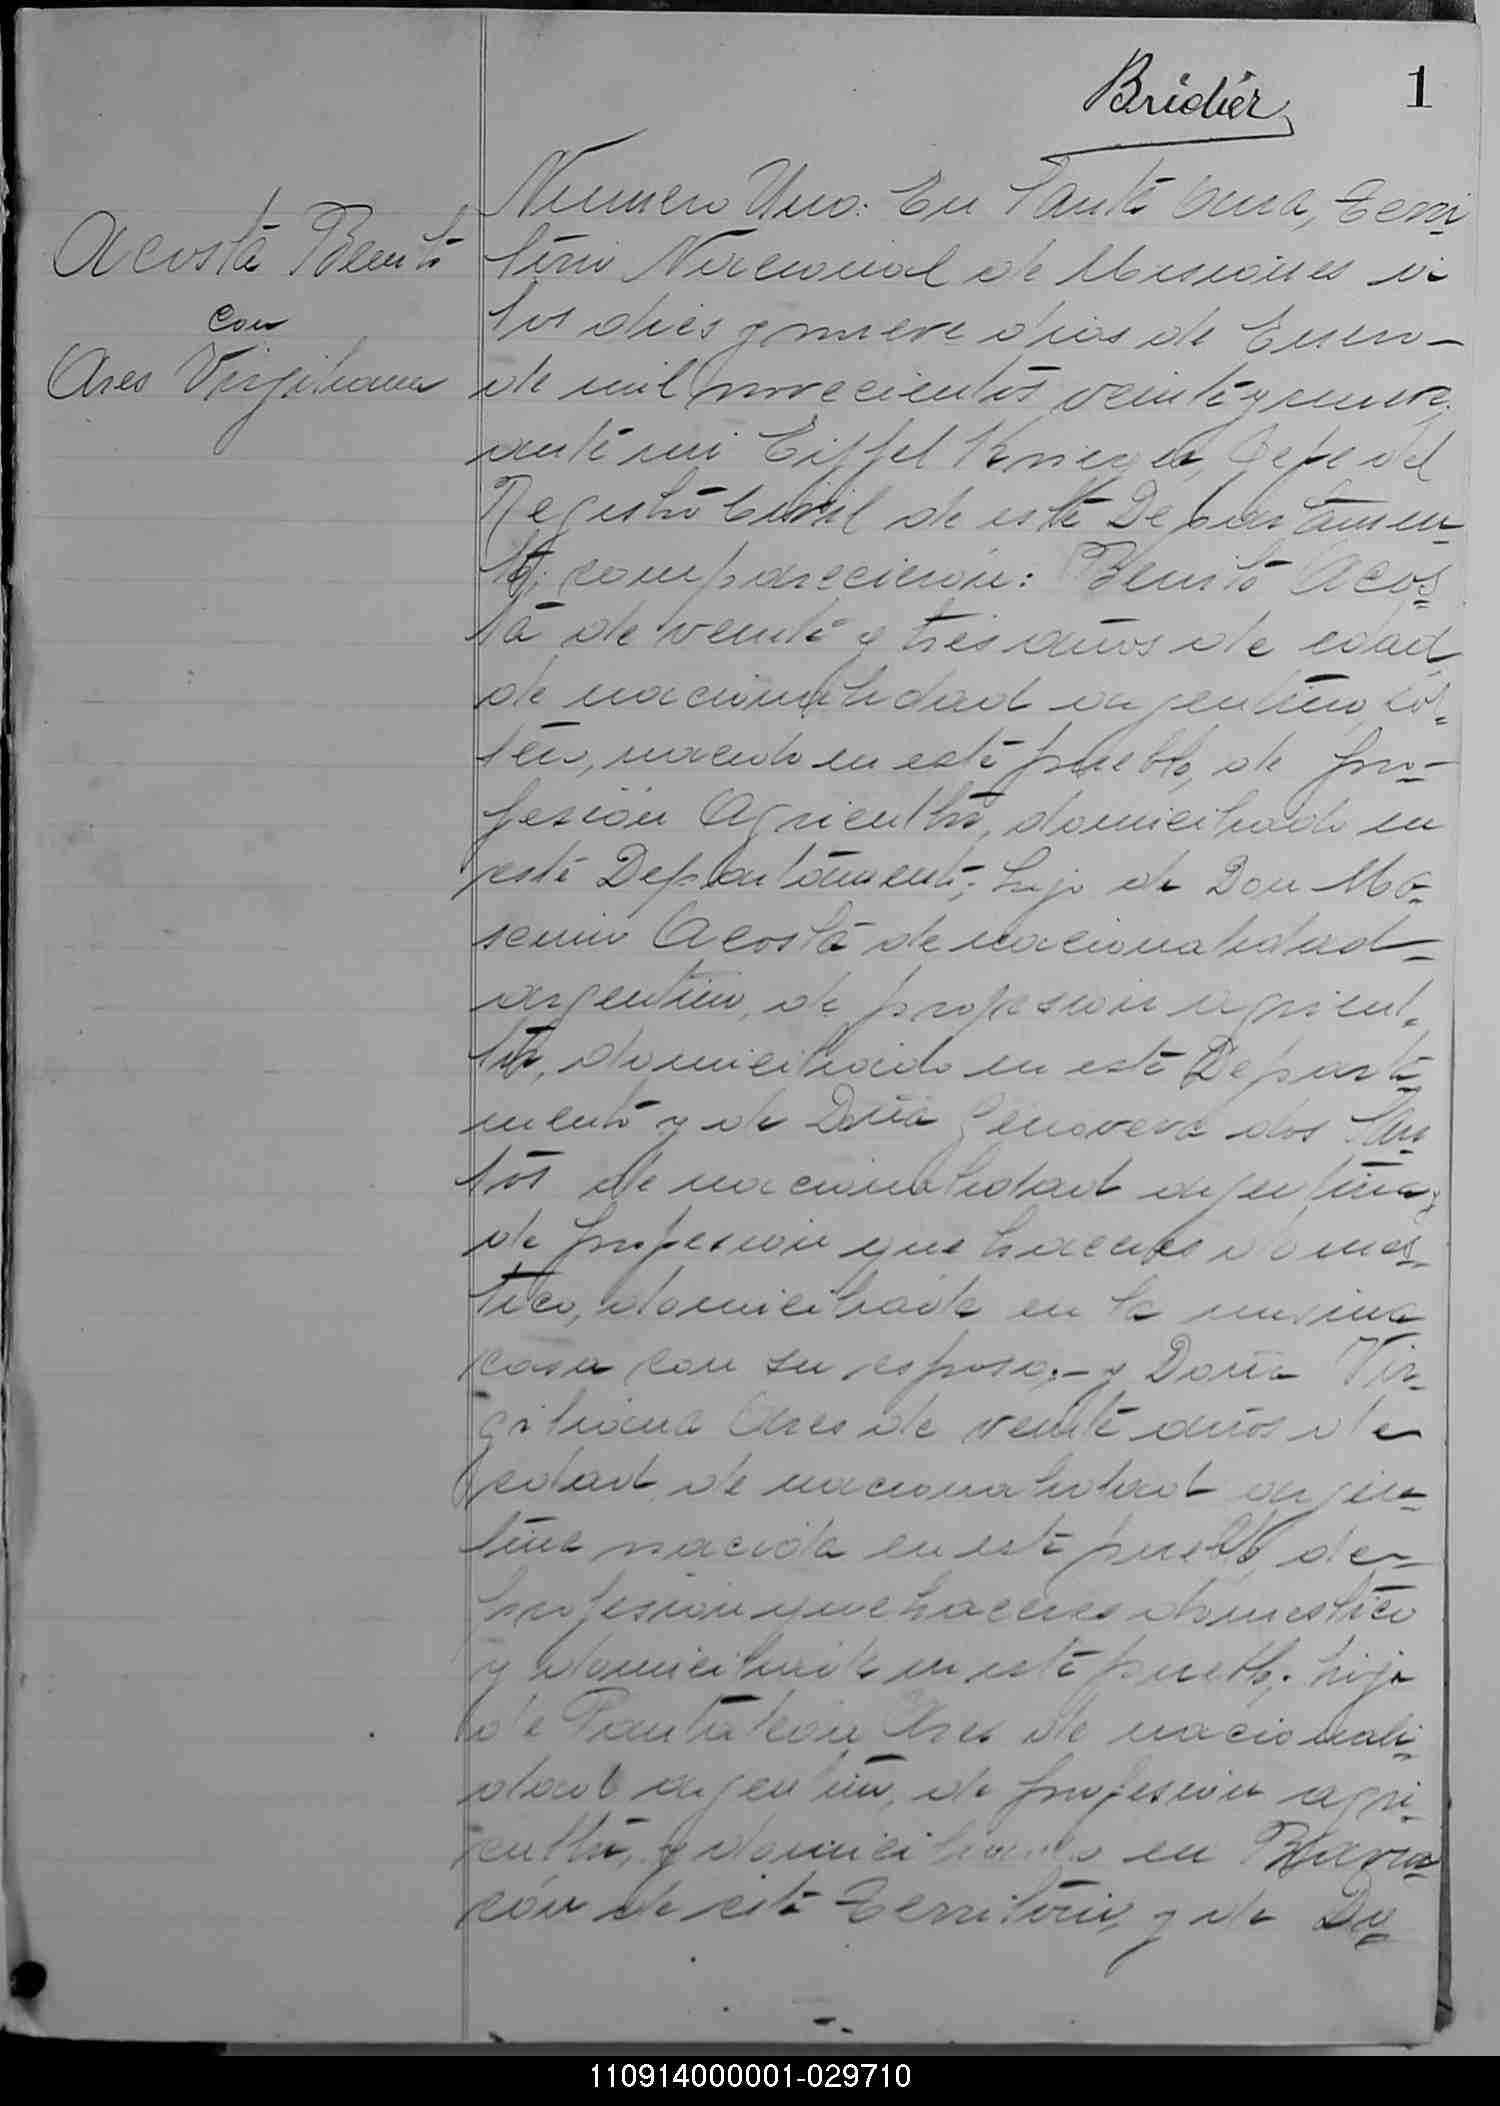 Bridier
1
Acosta Benito
con
Ares Virgiliana
Numero Uno: En Santa Ana, Terri
torio Nacional de Misiones á
los dies y nueve dias de Enero
de mil novecientos veinte y nueve
ante mi Eiffel Krieger, Gefe del
Registro Civil de este Departamen
to; comparecieron: Benito Acos
ta de veinte y tres años de edad
de nacionalidad argentino, sol
tero, nacido en este pueblo, de pro
fesion Agricultor, domiciliado en
este Departamento; hijo de Don Ma
semino Acosta de nacionalidad
argentino, de profesion agricul
tor, domiciliado en este Departa
mento y de Doña Genoveva dos San
tos de nacionalidad argentina,
de profesion quehaceres domes
tico, domiciliada en la misma
casa con su esposo; y Doña Vir
giliana Ares de veinte años de
edad, de nacionalidad argen
tina nacida en este pueblo de
profesion quehaceres domestico
y domiciliada en este pueblo; hija
de Pantaleon Ares de nacionali
dad argentino, de profesion agri
cultor, y domiciliado en
de este Territorio, y de Do
110914000001-029710